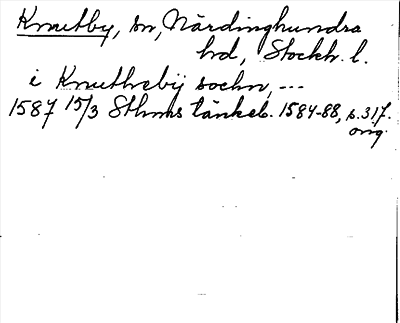 Knutby, sn, Närdinghundra
hd, Stockh. l.
i Knuthrebij sochn, ---
1587 15/3 Sthms tänkeb. 1584-88, s. 317.
orig.